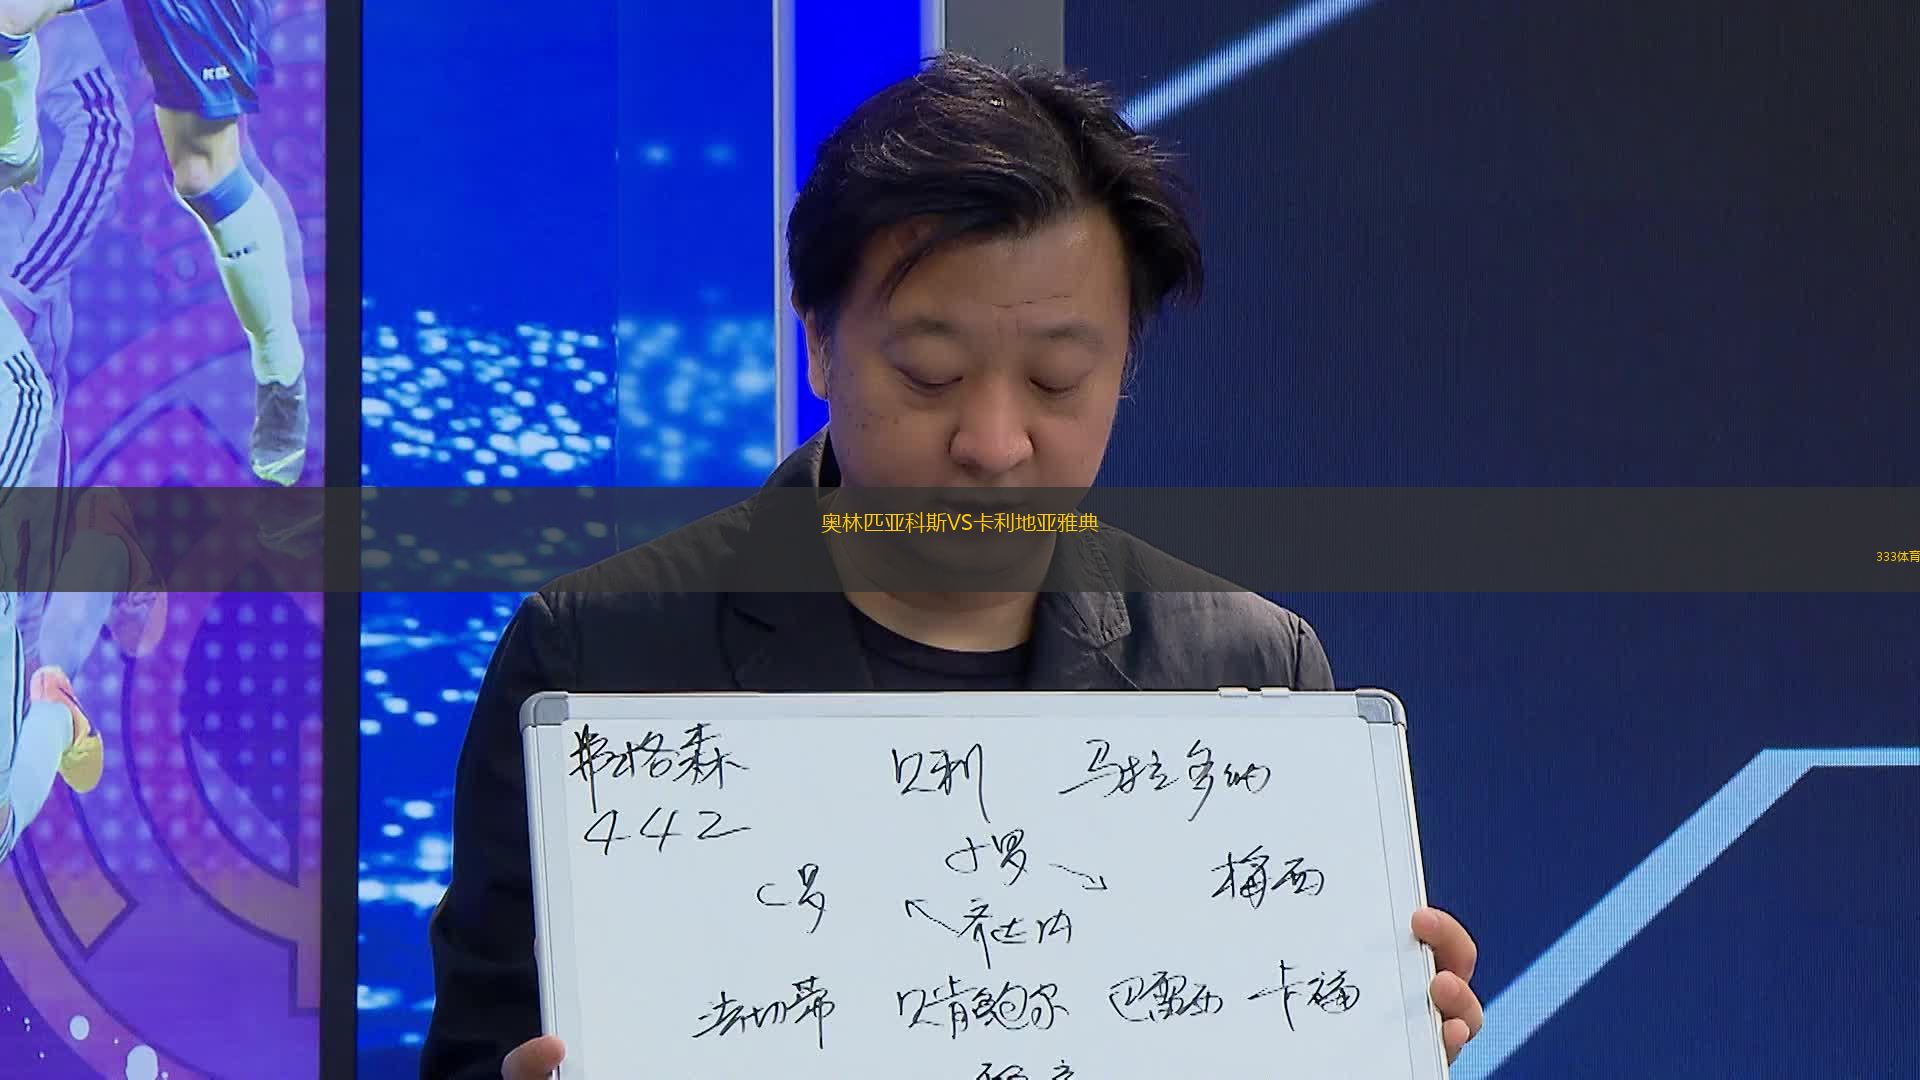 KEL
奥林匹亚科斯VS卡利地亚雅典
333体育
弗格森 贝利 马拉多纳
442
小罗
C罗 梅西
齐达内
法切蒂 贝肯鲍尔 巴雷西 卡福